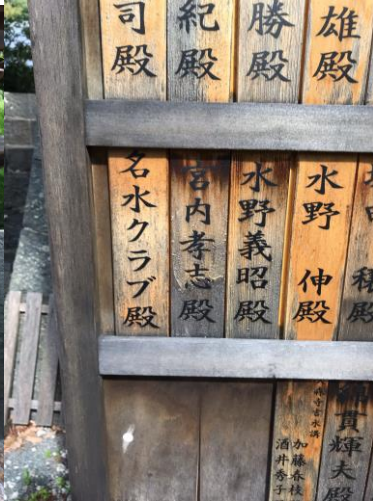 雄殿
勝殿
紀殿
司殿
殿
水野 伸殿
水野義昭殿
宮内孝志殿
名水クラブ殿
貫輝夫殿
加藤春枝
酒井秀子